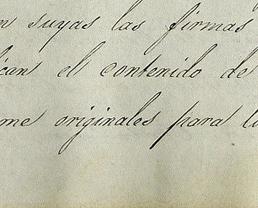 n suyas las firmas
ican el contenido de
me originales para la